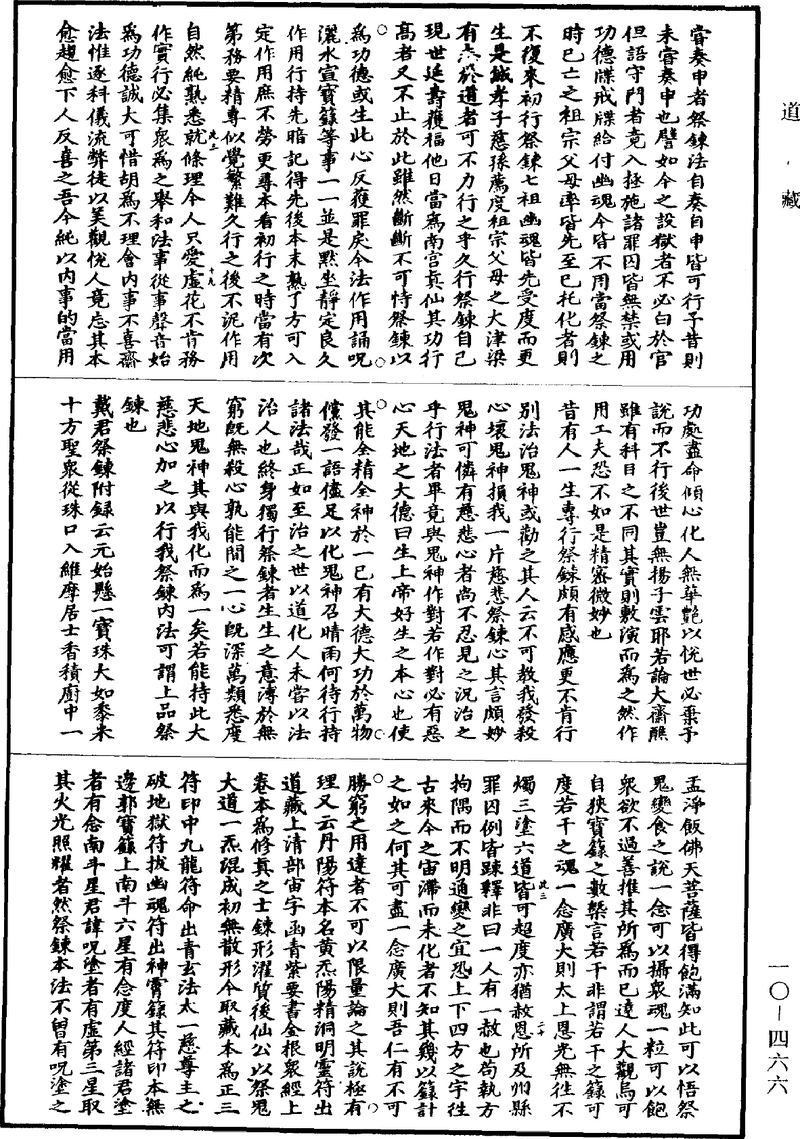 道藏
嘗奏申者祭鍊法自奏自申皆可行予昔則
未嘗奏申也譬如今之設獄者不必白於官
但語守門者竟入拯施諸罪囚皆無禁或用
功德牒戒牒給付幽魂今皆不用當祭鍊之
時已亡之祖宗父母率皆先至已托化者則
不復來初行祭鍊七祖幽魂皆先受度而更
生是誠孝子慈孫薦度祖宗父母之大津梁
有志於道者可不力行之乎久行祭鍊自己
現世延壽獲福他日當為南宮真仙其功行
高者又不止於此雖然斷斷不可恃祭鍊以
為功德或生此心反獲罪戾今法作用誦呪
灑水宣寶籙等事一一並是默坐靜定良久
作用行持先暗記得先後本末熟了方可入
定作用庶不勞更尋本看初行之時當有次
第務要精專似覺繁難久行之後不泥作用
自然純熟悉就條理今人只愛虛花不肯務
作實行必集眾為之舉和法事從事聲音始
為功德誠大可惜胡為不理會內事不喜齋
法惟逐科儀流弊徒以美觀悅人竟忘其本
愈趨愈下人反喜之吾今純以內事的當用
功處盡命傾心化人無華艷以悅世必棄予
說而不行後世豈無揚子雲耶若論大齋醮
雖有科目之不同其實則敷演而為之然作
用工夫恐不如是精密微妙也
昔有人一生專行祭鍊頗有感應更不肯行
別法治鬼神或勸之其人云不可教我發殺
心壞鬼神損我一片慈悲祭鍊心其言頗妙
鬼神可憐有慈悲心者尚不忍見之況治之
乎行法者畢竟與鬼神作對若作對必有惡
心天地之大德曰生上帝好生之本心也使
其能全精全神於一已有大德大功於萬物
儻發一語儘足以化鬼神召晴雨何待行持
諸法哉正如至治之世以道化人未嘗以法
治人也終身獨行祭鍊者生生之意溥於無
窮既無殺心孰能間之一心既深萬類悉度
天地鬼神其與我化而為一矣若能持此大
慈悲心加之以行我祭鍊內法可謂上品祭
鍊也
戴君祭鍊附錄云元始懸一寶珠大如黍米
十方聖眾從珠口入維摩居士香積廚中一
盂淨飯佛天菩薩皆得飽滿知此可以悟祭
鬼變食之說一念可以攝眾魂一粒可以飽
眾欲不過善推其所為而已達人大觀烏可
自狹寶籙之數槩言若干非謂若干之籙可
度若干之魂一念廣大則太上恩光無往不
燭三塗六道皆可超度亦猶赦恩所及州縣
罪囚例皆踈釋非曰一人有一赦也苟執方
拘隅而不明通變之宜恐上下四方之宇往
古來今之宙滯而未化者不知其幾以籙計
之如之何其可盡一念廣大則吾仁有不可
勝窮之用達者不可以限量論之其說極有
理又云丹陽符本名黃炁陽精洞明靈符出
道藏上清部宙字函青縈要書金根眾經上
卷本為修真之士鍊形濯質後仙公以祭鬼
大道一炁混成初無散形今取藏本為正三
符印中九龍符命出青玄法太一慈尊主之
破地獄符拔幽魂符出神霄籙其符印本無
邊郭寶籙上南斗六星有念度人經諸君塗
者有念南斗星君諱呪塗者有虛第三星取
其火光照耀者然祭鍊本法不曾有呪塗之
一〇-四六六